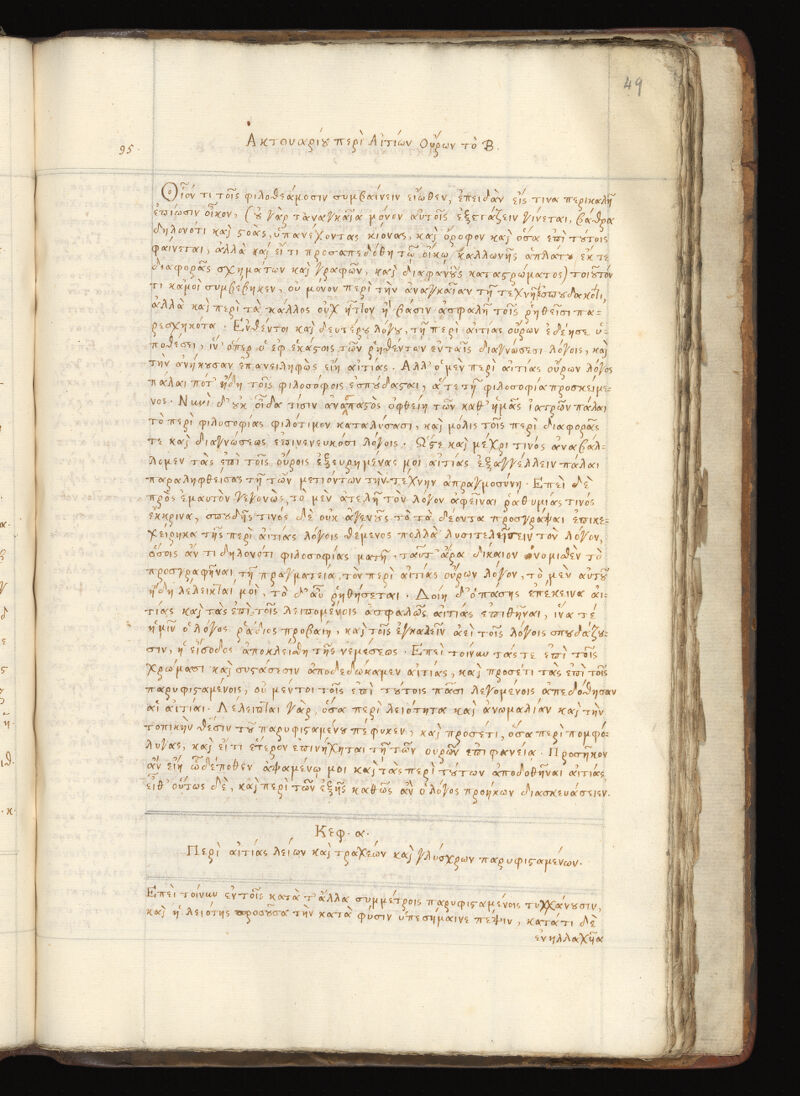 49
95.
Ἀκτουαρίου περὶ Αἰτιῶν Οὔρων τὸ Β.
Οἷόν τι τοῖς φιλοθεάμοσιν συμβαίνειν εἴωθεν, ἐπειδὰν εἴς τινα περικαλῆ
ἐπιῶσιν οἶκον, (οὐ γὰρ τἀναγκαῖα μόνον αὐτοῖς ἐξετάζειν γίνεται, βάθρα
δηλονότι καὶ στοὰς, ὑπανέχοντας κίονας, καὶ ὄροφον καὶ ὅσα ἐπὶ τούτοις
φαίνεται, ἀλλὰ καὶ εἴ τι προσαπεδόθη τῷ οἴκῳ καλλωνῆς ἁπλάτου ἔκ τε
διαφορᾶς σχημάτων καὶ γραφῶν, καὶ διαφανοῦς καταστρώματος) τοιοῦτόν
τι κᾀμοὶ συμβέβηκεν, οὐ μόνον περὶ τὴν ἀναγκαίαν τῇ τέχνῃ ἐσπουδακότι,
ἀλλὰ καὶ περὶ τὰ κάλλος οὐχ ἧττον ἢ βάσιν ἀσφαλῆ τοῖς ῥηθεῖσι πα-
ρεσχηκότα. Ἐνθέντοι καὶ δευτέρου λόγου, τῇ περὶ αἰτίας οὔρων ἐδέησε ὑ-
ποθέσει, ἵν' ὅπερ ὁ ἐφ ἑκάστοις τῶν ῥηθέντων ἐν ταῖς διαγνώσεσι λόγοις, καὶ
τὴν ἀνήκουσαν ἐπανειληφὼς εἴη αἰτίας. Ἀλλ' ὁ μὲν περὶ αἰτίας οὔρων λόγος
πάλαι πότ' ἤδη τοῖς φιλοσόφοις ἐσπούδασται, ἅτε τῇ φιλοσοφίᾳ προσκείμε-
νος. Νυνὶ δ' οὐκ οἶδα τίσιν ἀνάπαστος ὀφθείη τῶν καθ' ἡμᾶς ἰατρῶν πάλαι
τὸ περὶ φιλοσοφίας φιλότιμον καταλύσασι, καὶ μόλις τοῖς περὶ διαφορᾶς
τε καὶ διαγνώσεως ἐπινενευκόσι λόγοις. Ὥστε καὶ μέχρι τινὸς ἀναβάλ-
λομεν τὰς ἐπὶ τοῖς οὔροις ἐξευρημένας μοι αἰτίας ἐξαγγέλλειν πάλαι
παραληφθείσας τῇ τῶν μετιόντων τὴν τέχνην ἀπραγμοσύνῃ. Ἐπεὶ δὲ
πρὸς ἐμαυτὸν γεγονὼς, τὸ μὲν ἀτελῆ τὸν λόγον ἀφεῖναι ῥαθυμίας τινὸς
ἔκρινα, σπουδῆς τινὸς δὲ οὐκ ἀγενοῦς τὸ τὰ δέοντα προσγράψαι ἐπικε-
χείρηκα τῆς περὶ αἰτίας λόγοις θέμενος πολλὰ λυσιτελήσειν τὸν λόγον,
ὅσοις ἄν τι δηλονότι φιλοσοφίας ματῇ, ταῦτ' ἄρα δίκαιον ἐνομίσθεν τὸ
προσγραφῆναι τῇ πραγματείᾳ, τὸν περὶ αἰτίας οὔρων λόγον, τὸ μὲν αὐτοῦ
ἤδη λέλεκταί μοι, τὸ δ' αὖ ῥηθήσεται. Δοίη δ' ὁ πάσης ἐπέκεινα αἰ-
τίας καὶ τὰς ἐπὶ τοῖς λειπομένοις ἀσφαλῶς αἰτίας ἐπιθῆναι, ἵνα τέ
ἡμῖν ὁ λόγος ῥᾳδίως προβαίη, καὶ τοῖς ἐγκαλεῖν ἀεὶ τοῖς λόγοις σπουδάζου-
σιν, ἡ εἴσοδος ἀποκλεισθῇ τῆς νεμέσεως. Ἐπεὶ τοίνυν τάς τε ἐπὶ τοῖς
χρώμασι καὶ συστάσεσιν ἀποδεδώκαμεν αἰτίας, καὶ προσέτι τὰς ἐπὶ τοῖς
παρυφισταμένοις, οὐ μέντοι τοῖς ἐπὶ τούτοις πᾶσι λεγομένοις ἀπεδόθησαν
αἱ αἰτίαι. Λέλειπται γὰρ, ὅσα περὶ λειότητα καὶ ἀνωμαλίαν καὶ τὴν
τοπικὴν θέσιν τοῦ παρυφισταμένου πέφυκεν, καὶ προσέτι, ὅσα περὶ πομφό-
λυγας, καὶ εἴ τι ἕτερον ἐπινήχηται τῇ τῶν οὔρων ἐπιφανείᾳ. Προσῆκον
ἂν εἴη ὧδέ ποθεν ἁψαμένῳ μοι καὶ τὰς περὶ τούτων ἀποδοθῆναι αἰτίας,
εἶθ' οὕτως δὲ, καὶ περὶ τῶν ἑξῆς καθὼς ἂν ὁ λόγος προήκων διασκευάσειεν.
Κεφ. α.
Περὶ αἰτίας λείων καὶ τραχέων καὶ γλίσχρων παρυφισταμένων.
Ἐπεὶ τοίνυν ἐν τοῖς κατὰ τ' ἄλλα συμμέτροις παρυφισταμένοις τυγχάνουσιν,
καὶ ἡ λειότης προσοῦσα τὴν κατὰ φύσιν ὑπεσήμαινε πέψιν, κατάτι δὲ
ἐνηλλαχῆα